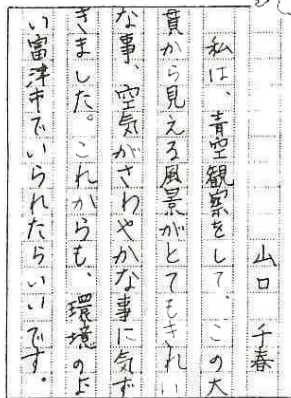 山口 千春
私は、青空観察をして、この大
貫から見える風景がとてもきれい
な事、空気がさわやかな事に気ず
きました。これからも、環境のよ
い富津市でいられたらいいです。